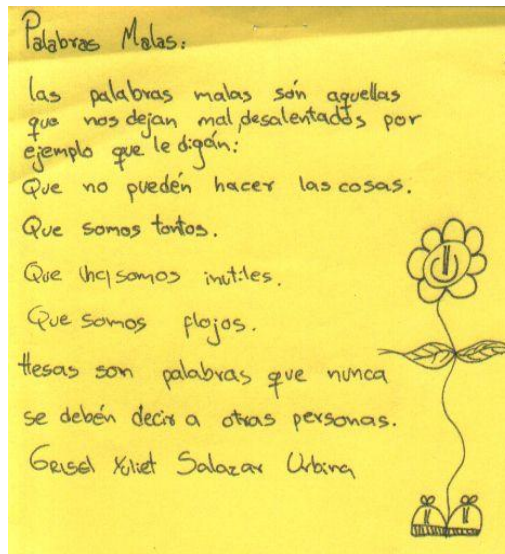 Palabras Malas:
las palabras malas són aquellas
que nos dejan mal,desalentados por
ejemplo que le digán:
Que no puedén hacer las cosas.
Que somos tontos.
Que somos inutiles.
Que somos flojos.
Hesas son palabras que nunca
se debén decir a otras personas.
Geisel Yuliet Salazar Urbina